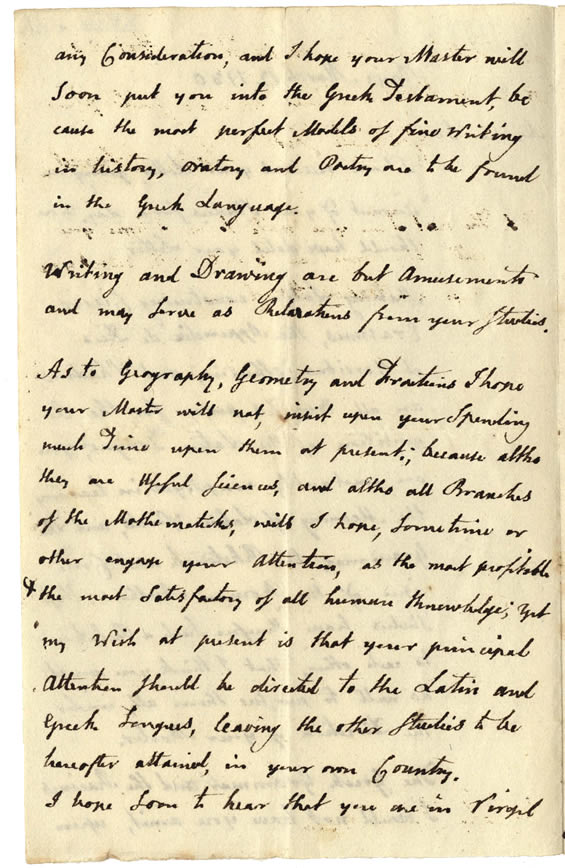 any Consideration, and I hope your Master will
Soon put you into the Greek Testament, be
cause the most perfect Models of fine Writing
in history, Oratory and Poetry are to be found
in the Greek Language.
Writing and Drawing are but Amusements
and may Serve as Relaxations from your Studies.
As to Geography, Geometry and Fractions I hope
your Master will not, insist upon your Spending
much Time upon them at present; because altho
they are Useful Sciences, and altho all Branches
of the Mathematicks, will I hope, Sometime or
other engage your Attention, as the most profitable
& the most Satisfactory of all human Knowledge; Yet
my Wish at present is that your principal
Attention should be directed to the Latin and
Greek Tongues, leaving the other Studies to be
hereafter attained, in your own Country.
I hope Soon to hear that you are in Virgil